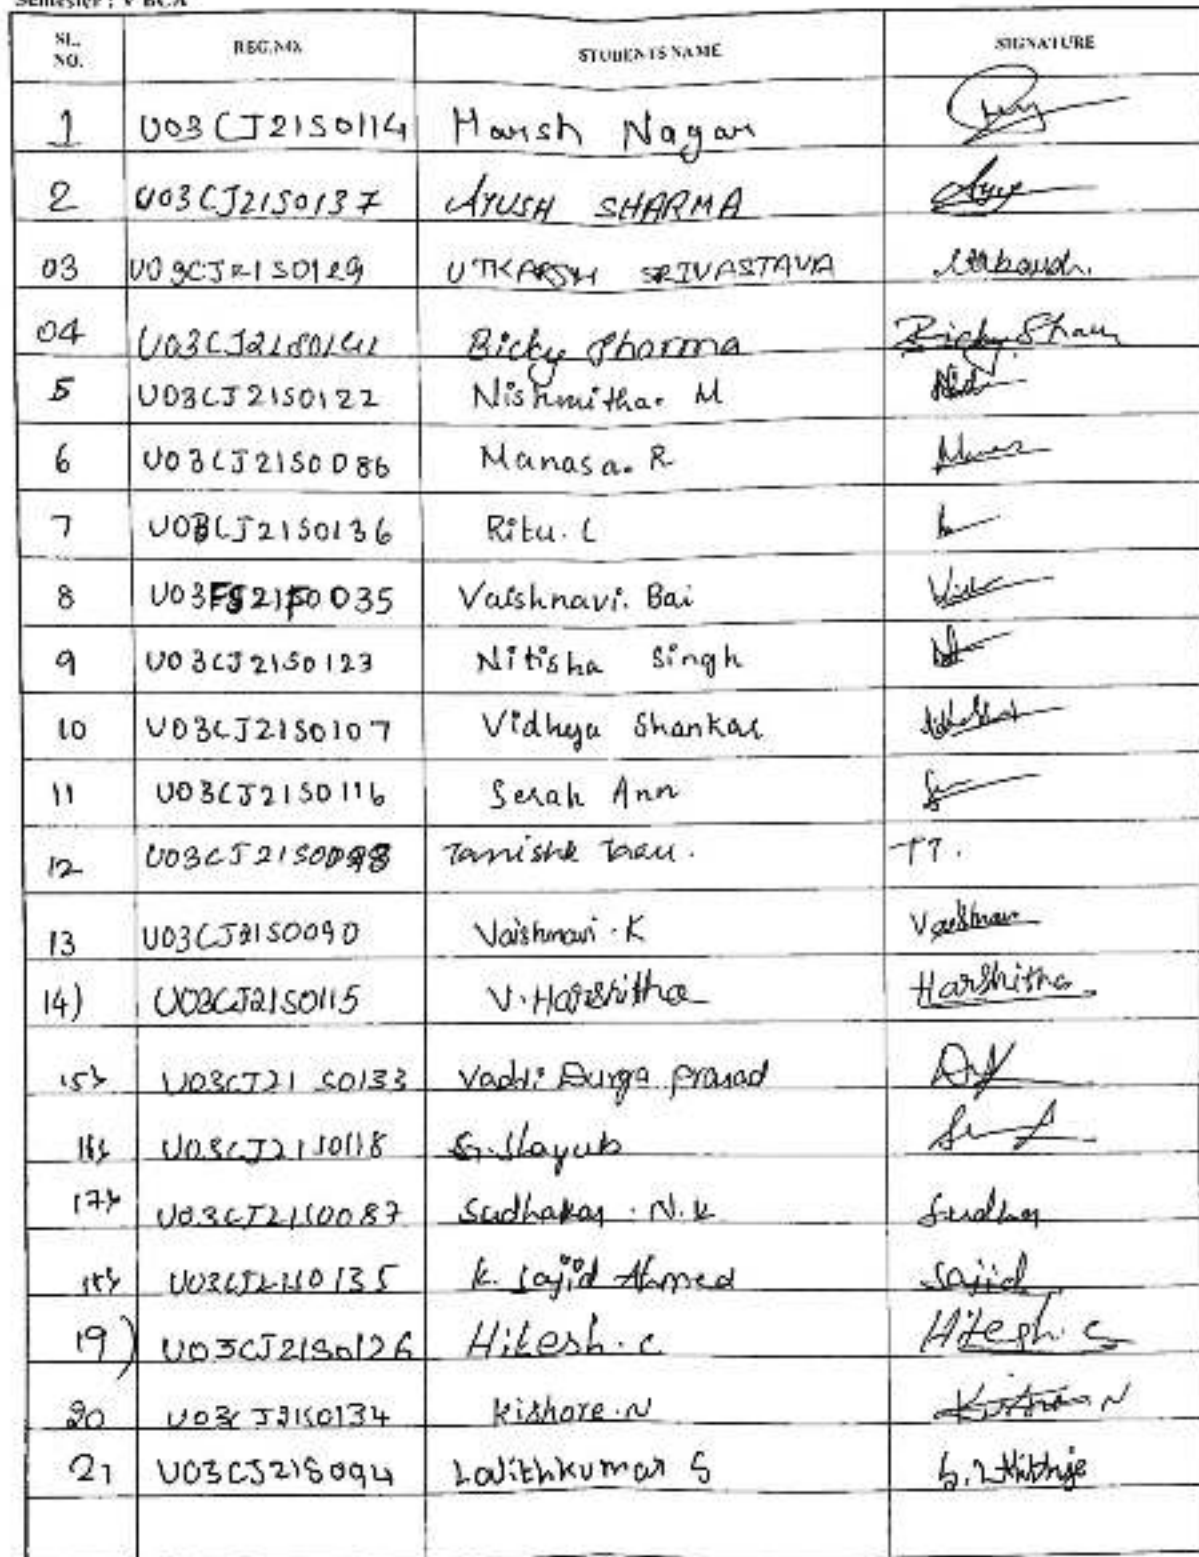 Semester : V BCA
SL. NO. REG.NO. STUDENTS NAME SIGNATURE
1 U03CJ21S0114 Harish Nagar
2 U03CJ21S0137 AYUSH SHARMA
03 U03CJ21S0129 UTKARSH SRIVASTAVA
04 U03CJ21S0141 Bicky Sharma
5 U03CJ21S0122 Nishmitha. M
6 U03CJ21S0086 Manasa. R
7 U03CJ21S0136 Ritu. C
8 U03FS21F0035 Vaishnavi. Bai
9 U03CJ21S0123 Nitisha Singh
10 U03CJ21S0107 Vidhya Shankar
11 U03CJ21S0116 Serah Ann
12 Tanishk TT.
13 U03CJ21S0090 Vaishnavi . K
14) U03CJ21S0115 V. Harshitha Harshitha
15) U03CJ21 S0133 Vaddi Durga prasad
16) U03CJ21S0118
17) U03CJ21S0087 Sudhakar . N. K Sudhar
18) U03CJ21S0135 K. Sajid Ahmed Sajid
19) U03CJ21S0126 Hitesh . C Hitesh . C
20 U03CJ21S0134 Kishore . N Kishore N
21 U03CJ21S094 Lalithkumar S